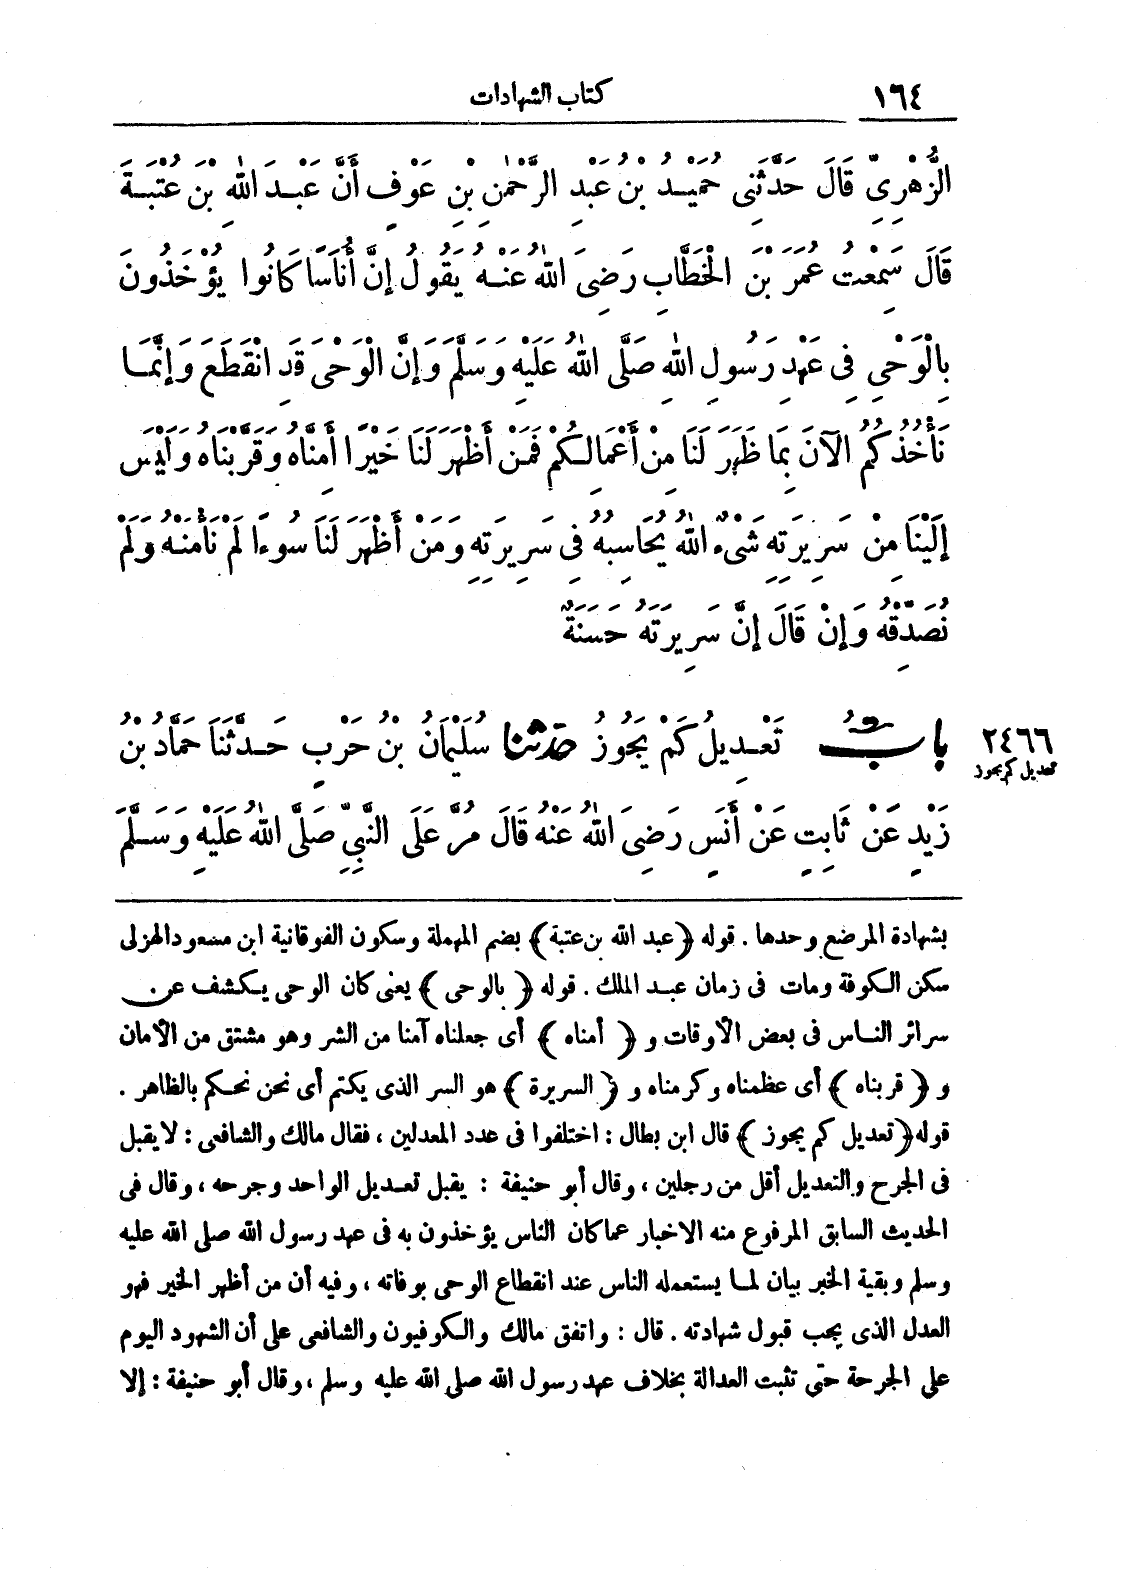 ١٦٤
كتاب الشهادات
الزُّهْرِيِّ قَالَ حَدَّثَنِي حُمَيْدُ بْنُ عَبْدِ الرَّحْمٰنِ بْنِ عَوْفٍ أَنَّ عَبْدَ اللهِ بْنَ عُتْبَةَ
قَالَ سَمِعْتُ عُمَرَ بْنَ الْخَطَّابِ رَضِيَ اللهُ عَنْهُ يَقُولُ إِنَّ أُنَاسًا كَانُوا يُؤْخَذُونَ
بِالْوَحْيِ فِي عَهْدِ رَسُولِ اللهِ صَلَّى اللهُ عَلَيْهِ وَسَلَّمَ وَإِنَّ الْوَحْيَ قَدِ انْقَطَعَ وَإِنَّمَا
نَأْخُذُكُمُ الْآنَ بِمَا ظَهَرَ لَنَا مِنْ أَعْمَالِكُمْ فَمَنْ أَظْهَرَ لَنَا خَيْرًا أَمِنَّاهُ وَقَرَّبْنَاهُ وَلَيْسَ
إِلَيْنَا مِنْ سَرِيرَتِهِ شَيْءٌ اللهُ يُحَاسِبُهُ فِي سَرِيرَتِهِ وَمَنْ أَظْهَرَ لَنَا سُوءًا لَمْ نَأْمَنْهُ وَلَمْ
نُصَدِّقْهُ وَإِنْ قَالَ إِنَّ سَرِيرَتَهُ حَسَنَةٌ
٢٤٦٦
تعديل كم يجوز
بَابُ تَعْدِيلُ كَمْ يَجُوزُ حَدَّثَنَا سُلَيْمَانُ بْنُ حَرْبٍ حَدَّثَنَا حَمَّادُ بْنُ
زَيْدٍ عَنْ ثَابِتٍ عَنْ أَنَسٍ رَضِيَ اللهُ عَنْهُ قَالَ مُرَّ عَلَى النَّبِيِّ صَلَّى اللهُ عَلَيْهِ وَسَلَّمَ
بشهادة المرضع وحدها . قوله ﴿عبد الله بن عتبة﴾ بضم المهملة وسكون الفوقانية ابن مسعود الهزلى
سكن الكوفة ومات فى زمان عبد الملك . قوله ﴿بالوحى﴾ يعنى كان الوحى يكشف عن
سرائر الناس فى بعض الأوقات و ﴿أمناه﴾ أى جعلناه آمنا من الشر وهو مشتق من الأمان
و ﴿قربناه﴾ أى عظمناه وكرمناه و ﴿السريرة﴾ هو السر الذى يكتم أى نحن نحكم بالظاهر .
قوله ﴿تعديل كم يجوز﴾ قال ابن بطال : اختلفوا فى عدد المعدلين ، فقال مالك والشافعى : لا يقبل
فى الجرح والتعديل أقل من رجلين ، وقال أبو حنيفة : يقبل تعديل الواحد وجرحه ، وقال فى
الحديث السابق المرفوع منه الاخبار عما كان الناس يؤخذون به فى عهد رسول الله صلى الله عليه
وسلم وبقية الخبر بيان لما يستعمله الناس عند انقطاع الوحى بوفاته ، وفيه أن من أظهر الخير فهو
العدل الذى يجب قبول شهادته . قال : واتفق مالك والكوفيون والشافعى على أن الشهود اليوم
على الجرحة حتى تثبت العدالة بخلاف عهد رسول الله صلى الله عليه وسلم ، وقال أبو حنيفة : إلا